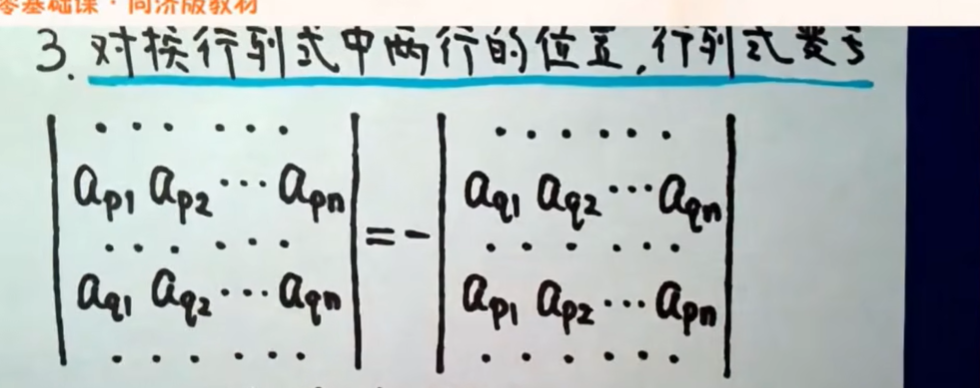 零基础课·同济版教材
3. 对换行列式中两行的位置,行列式变号
| · · · · · · | | · · · · · · |
| ap1 ap2 ··· apn | | aq1 aq2 ··· aqn |
| · · · · · · | = - | · · · · · · |
| aq1 aq2 ··· aqn | | ap1 ap2 ··· apn |
| · · · · · · | | · · · · · · |